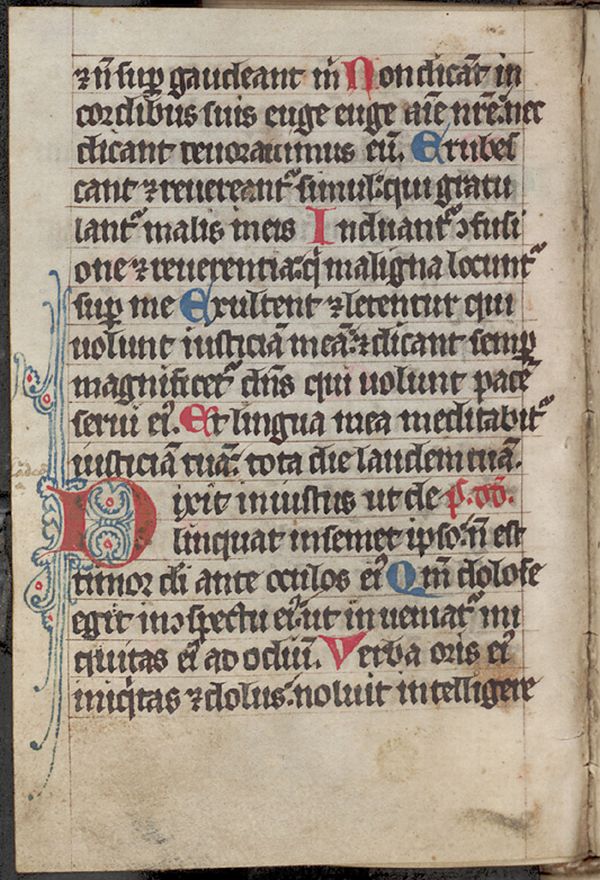 ⁊ n̄ suꝑ gaudeant m̄ Non dicāt in
cordibus suis euge euge aīe nrē: nec
dicant deuorauimus eū. Erubes
cant ⁊ reuereantᷣ simul: qui gratu
lantᷣ malis meis Induantᷣ ꝯfusi
one ⁊ reuerentia: q̄ maligna locuntᷣ
suꝑ me Exultent ⁊ letentur qui
uolunt iusticiā meā: ⁊ dicant semꝑ
magnificetᷣ dn̄s qui uolunt pacē
serui eiꝰ. Et lingua mea meditabitᷣ
iusticiā tuā: tota die laudem tuā.
Dixit iniustus ut de p̄. dd̄.
linquat in semet ipso: n̄ est
timor di ante oculos eiꝰ Qm̄ dolose
egit in ꝯspectu eiꝰ: ut inueniatᷣ ini
quitas eiꝰ ad odiū. Verba oris eiꝰ
iniq̄tas ⁊ dolus: noluit intelligere